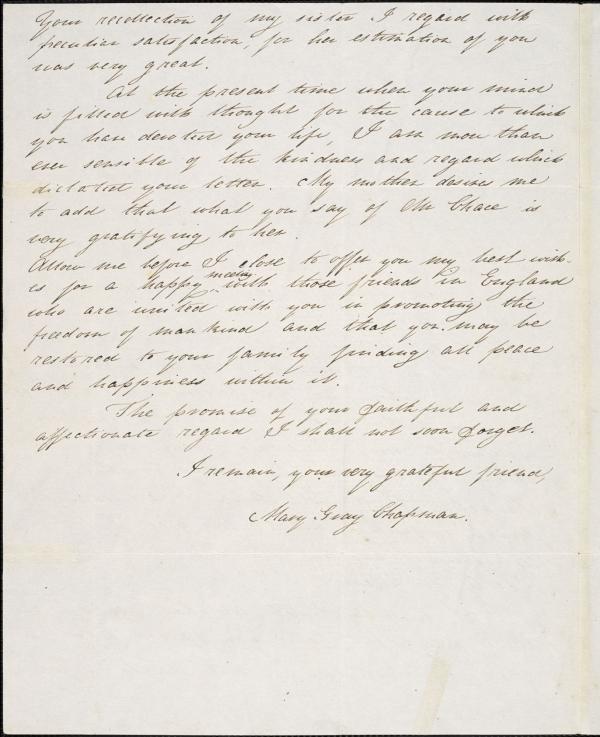 Your recollection of my sister I regard with
peculiar satisfaction, for her estimation of you
was very great.
At the present time when your mind
is filled with thought for the cause to which
you have devoted your life, I am more than
ever sensible of the kindness and regard which
dictated your letter. My mother desires me
to add that what you say of Mr Chace is
very gratifying to her.
Allow me before I close to offer you my best wish-
es for a happy meeting with those friends in England
who are united with you in promoting the
freedom of mankind and that you may be
restored to your family finding all peace
and happiness within it.
The promise of your faithful and
affectionate regard I shall not soon forget.
I remain, your very grateful friend,
Mary Gray Chapman.